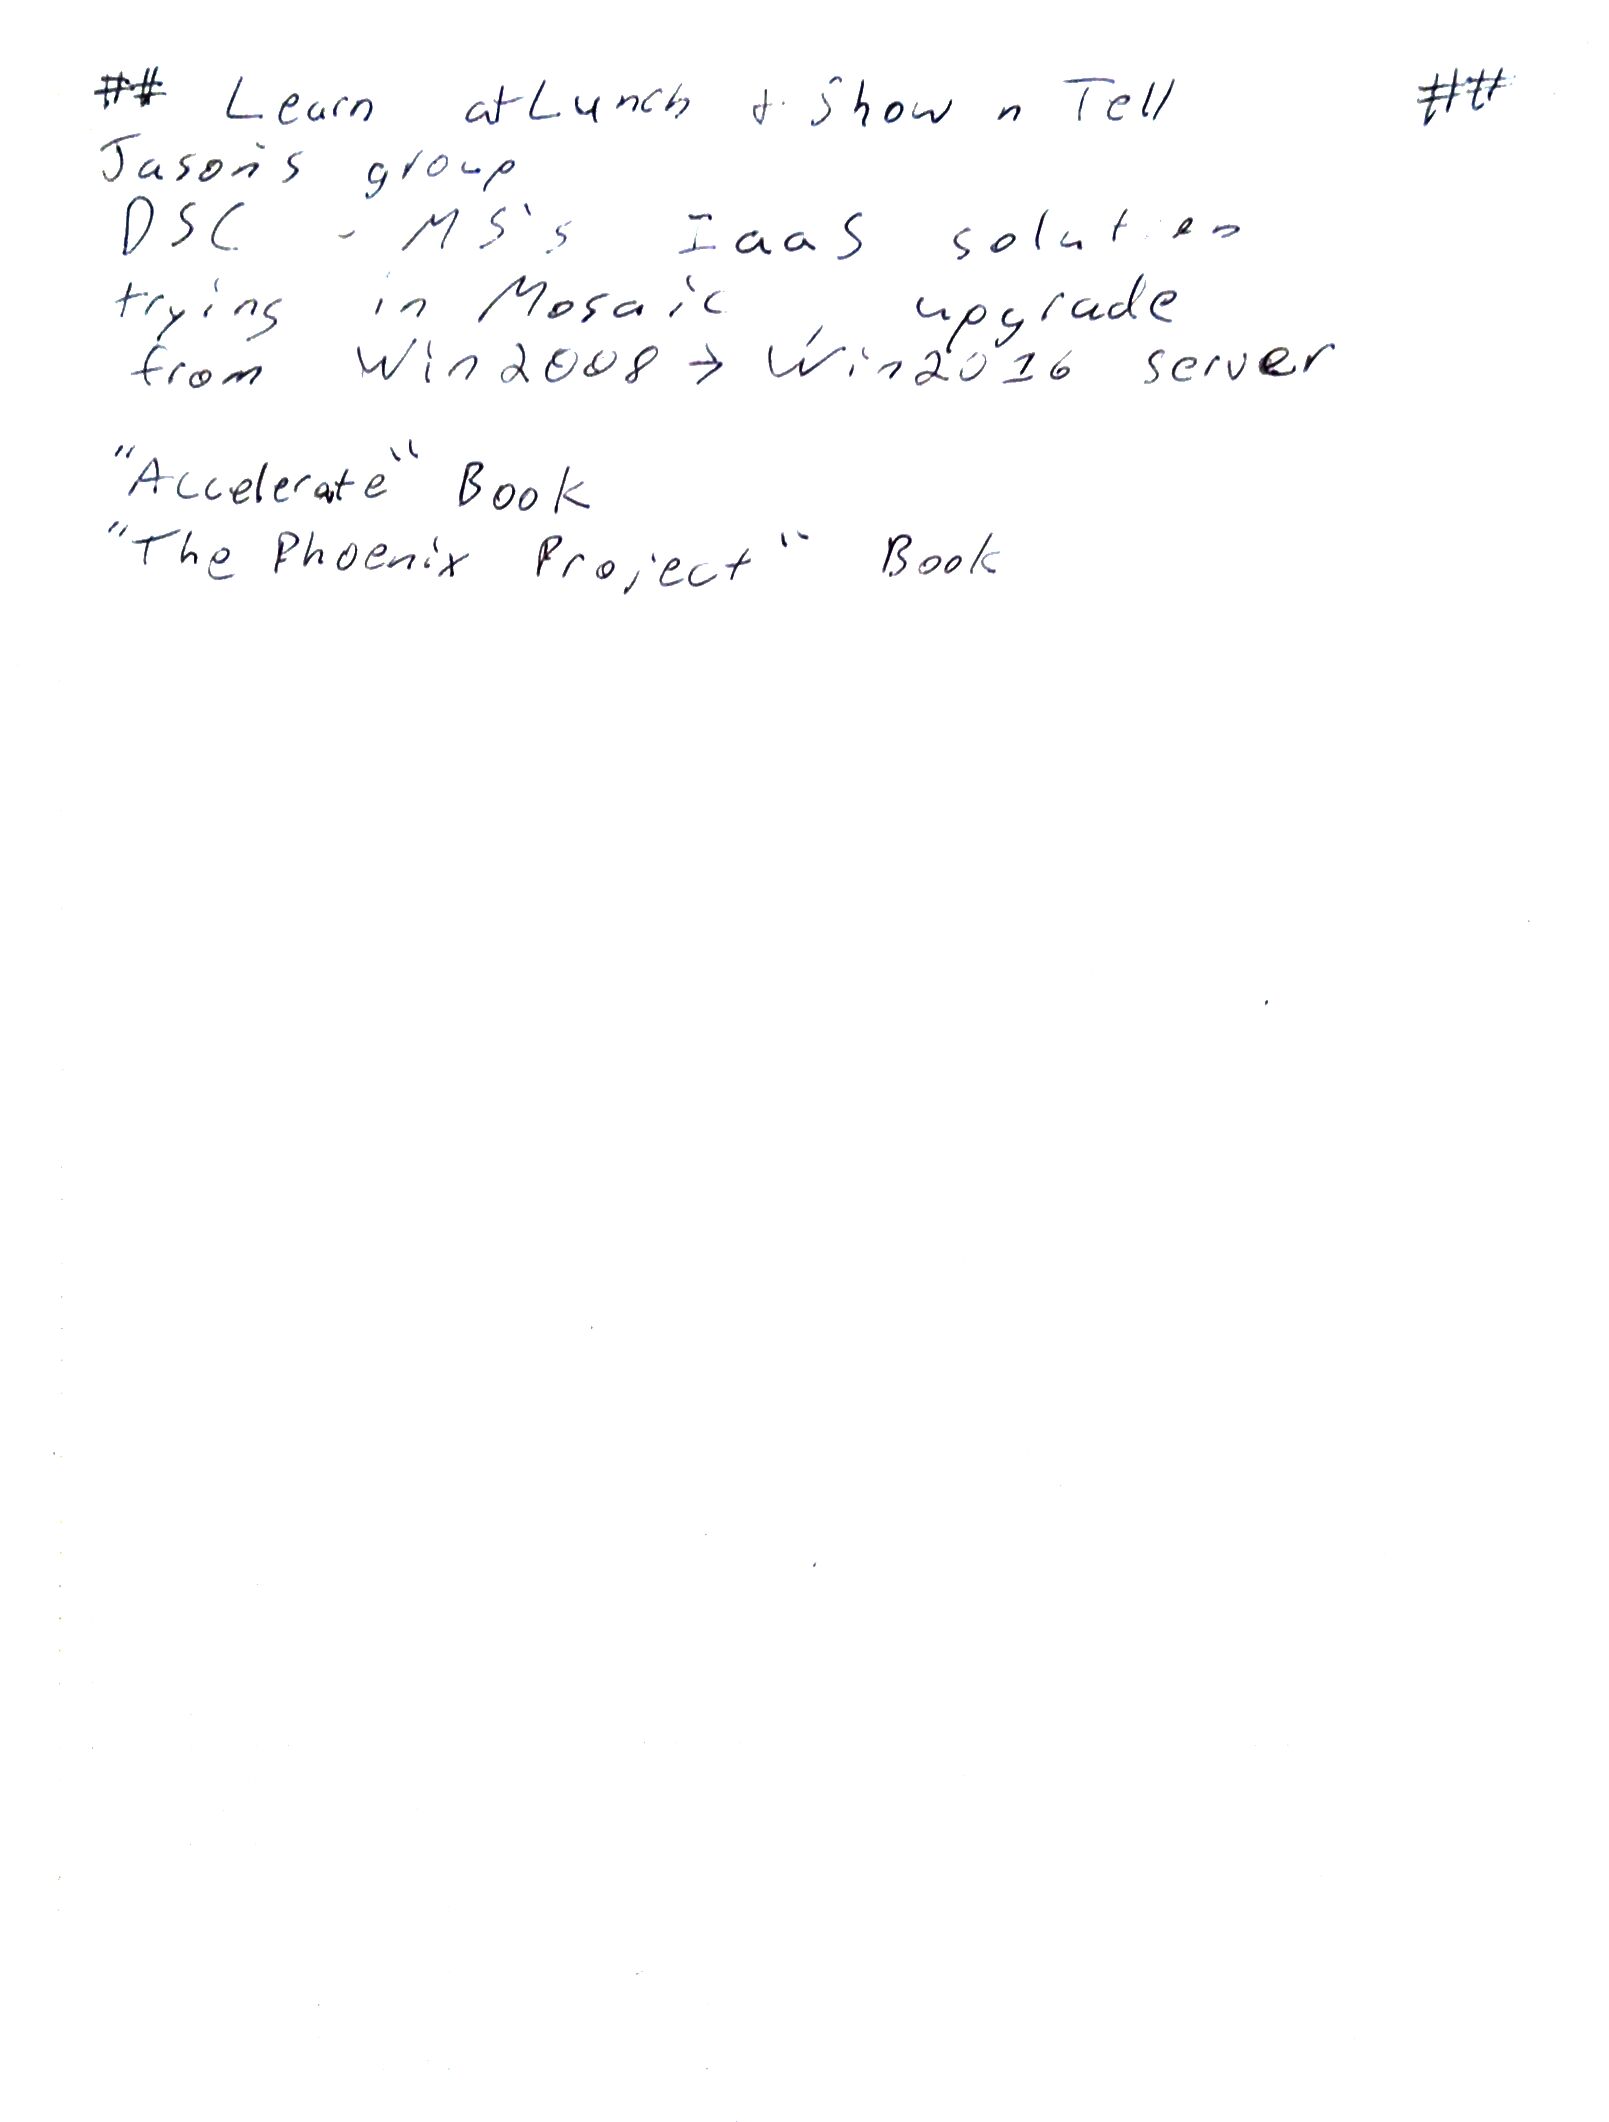 ## Learn at Lunch + Show n Tell ##
Jason's group
DSC - MS's IaaS solution
trying in Mosaic upgrade
from Win2008 → Win2016 server
"Accelerate" Book
"The Phoenix Project" Book